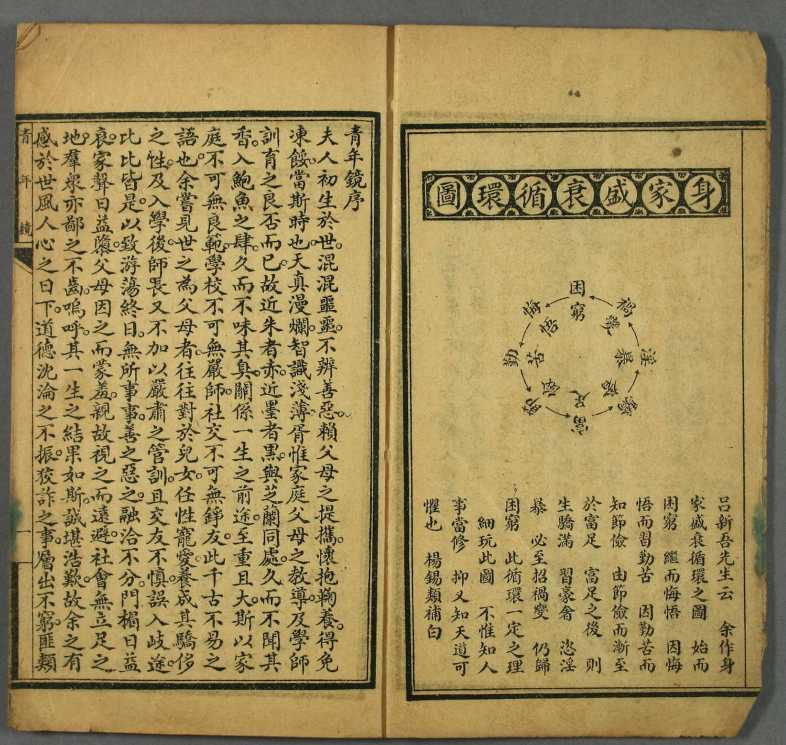 身家盛衰循環圖
困窮
悔悟
勤苦
節儉
富足
驕奢
淫暴
禍變
呂新吾先生云　余作身
家盛衰循環之圖　始而
困窮　繼而悔悟　因悔
悟而習勤苦　因勤苦而
知節儉　由節儉而漸至
於富足　富足之後　則
生驕滿　習豪奢　恣淫
暴　必至招禍變　仍歸
困窮　此循環一定之理
細玩此圖　不惟知人
事當修　抑又知天道可
懼也　楊錫類補白
青年鏡序
夫人初生於世。混混噩噩。不辨善惡。賴父母之提攜。懷抱鞠養。得免
凍餒。當斯時也。天真漫爛。智識淺薄。胥惟家庭父母之教導。及學師
訓育之良否而已。故近朱者赤。近墨者黑。與芝蘭同處。久而不聞其
香。入鮑魚之肆。久而不味其臭。關係一生之前途。至重且大。斯以家
庭不可無良範。學校不可無嚴師。社交不可無錚友。此千古不易之
語也。余嘗見世之為父母者。往往對於兒女。任性寵愛。養成其驕侈
之性。及入學後。師畏又不加以嚴肅之管訓。且交友不慎。誤入歧途。
比比皆是。以致游蕩終日。無所事事。善之惡之。融洽不分。門楣日益
衰。家聲日益隳。父母因之而蒙羞。親故視之而遠避。社會無立足之
地。羣眾亦鄙之不齒。嗚呼。其一生之結果如斯。誠堪浩歎。故余之有
感於世風人心之日下。道德沈淪之不振。狡詐之事。層出不窮。匪類
青年鏡
一